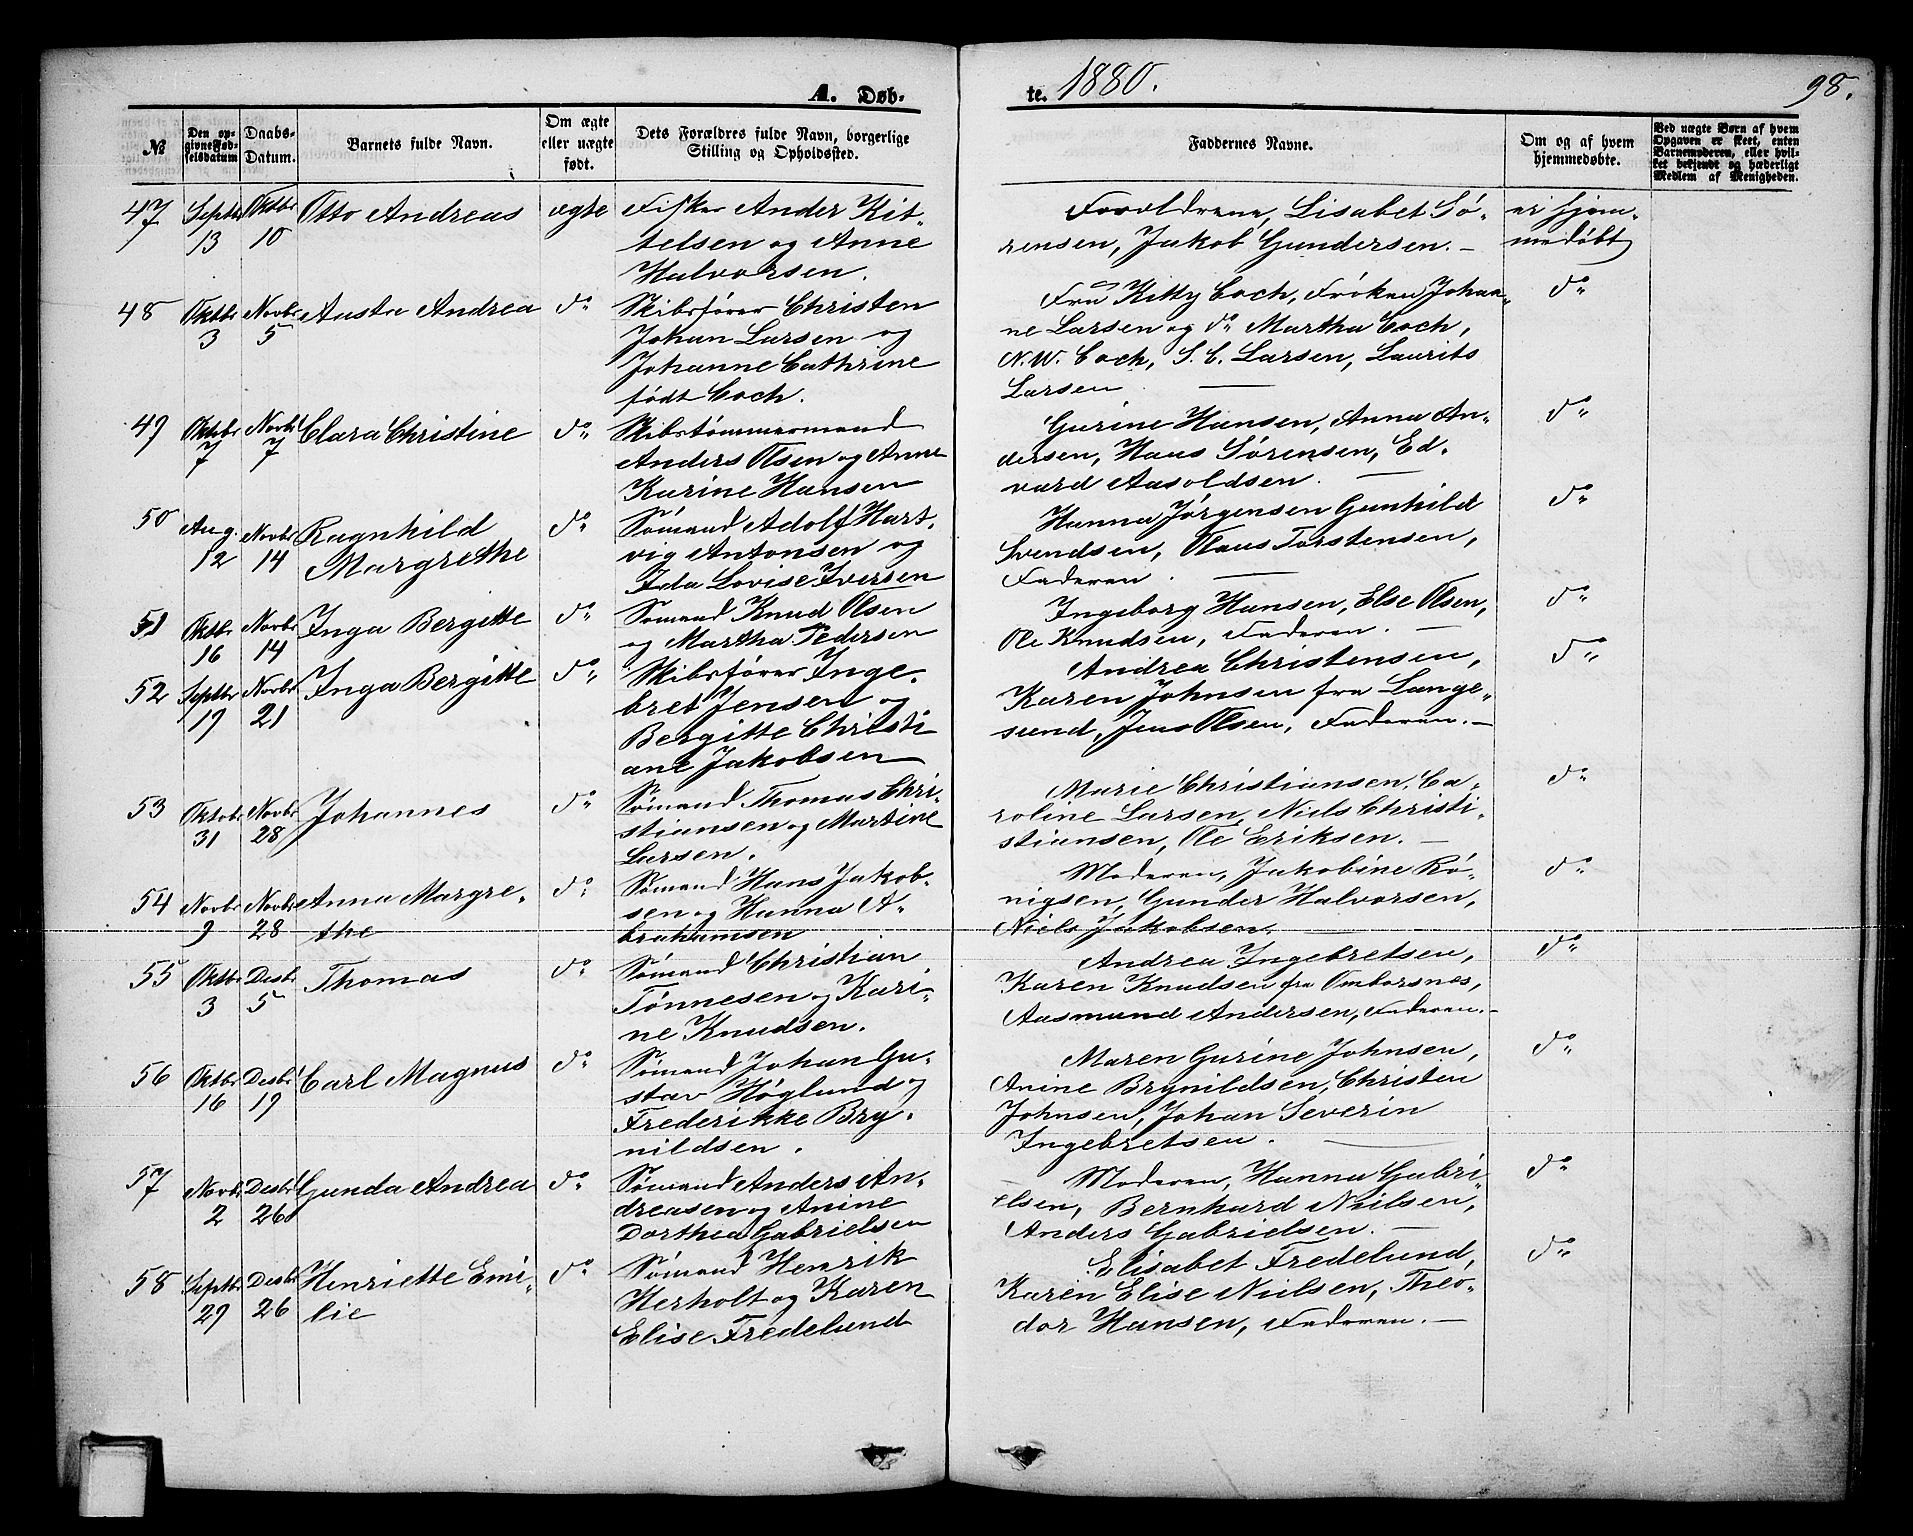 A. Døb-
te. 1880.
98.
№
Den op-
givne Fød-
selsdatum
Daabs-
Datum.
Barnets fulde Navn.
Om ægte
eller uægte
født.
Dets Forældres fulde Navn, borgerlige
Stilling og Opholdssted.
Faddernes Navne.
Om og af hvem
hjemmedøbte.
Ved uægte Børn af hvem
Opgaven er skeet, enten
Barnemoderen, eller hvil-
ket bekjendt og hæderligt
Medlem af Menigheden.
47 Septbr 13 Oktbr 10 Otto Andreas ægte
Fisker Ander Kit-
telsen og Anne
Halvorsen.
Forældrene, Lisabet Sø-
rensen, Jakob Gundersen. —
ei hjem-
medøbt
48 Oktbr 3 Novbr 5 Austa Andrea do
Skibsfører Christen
Johan Larsen og
Johanne Cathrine
født Coch.
Fru Kitty Coch, Frøken Johan-
ne Larsen og do Martha Coch,
N.W. Coch, S. C. Larsen, Laurits
Larsen. —
do
49 Oktbr 7 Novbr 7 Clara Christine do
Skibstømmermand
Anders Olsen og Anne
Karine Hansen
Gurine Hansen, Anna An-
dersen, Hans Sørensen, Ed-
vard Aasoldsen. —
do
50 Aug. 12 Novbr 14 Ragnhild
Margrethe do
Sømand Adolf Hart-
vig Antonsen og
Ida Lovise Iversen
Hanna Jørgensen Gunhild
Svendsen, Olaus Torstensen,
Faderen. —
do
51 Oktbr 16 Novbr 14 Inga Bergitte do
Sømand Knud Olsen
og Martha Pedersen
Ingeborg Hansen, Else Olsen,
Ole Knudsen, Faderen. —
do
52 Septbr 19 Novbr 21 Inga Bergitte do
Skibsfører Inge-
bret Jensen og
Bergitte Christi
ane Jakobsen
Andrea Christensen,
Karen Johnsen fra Lange-
sund, Jens Olsen, Faderen. —
do
53 Oktobr 31 Novbr 28 Johannes do
Sømand Thomas Chri-
stiansen og Martine
Larsen.
Marie Christiansen, Ca-
roline Larsen, Niels Christi-
stiansen, Ole Eriksen. —
do
54 Novbr 9 Novbr 28 Anna Margre-
the do
Sømand Hans Jakob-
sen og Hanna A-
brahamsen
Moderen, Jakobine Rø-
nigsen, Gunder Halvorsen,
Niels Jakobsen. —
do
55 Oktbr 3 Desbr 5 Thomas do
Sømand Christian
Tønnesen og Kari-
ne Knudsen.
Andrea Ingebretsen,
Karen Knudsen fra Omborsnes,
Aasmund Andersen, Faderen. —
do
56 Oktbr 16 Desbr 19 Carl Magnus do
Sømand Johan Gu-
stav Høglund og
Frederikke Bry-
nildsen.
Maren Gurine Johnsen,
Anine Brynildsen, Christen
Johnsen, Johan Severin
Ingebretsen. —
do
57 Novbr 2 Desbr 26 Gunda Andrea do
Sømand Anders An-
dreasen og Anine
Dorthea Gabrielsen
Moderen, Hanna Gabri-
elsen, Bernhard Nielsen,
Anders Gabrielsen. —
do
58 Septbr 29 Desbr 26 Henriette Emi-
lie do
Sømand Henrik
Herholt og Karen
Elise Fredelund
Elisabet Fredelund,
Karen Elise Nielsen, Theo-
dor Hansen, Faderen. —
do